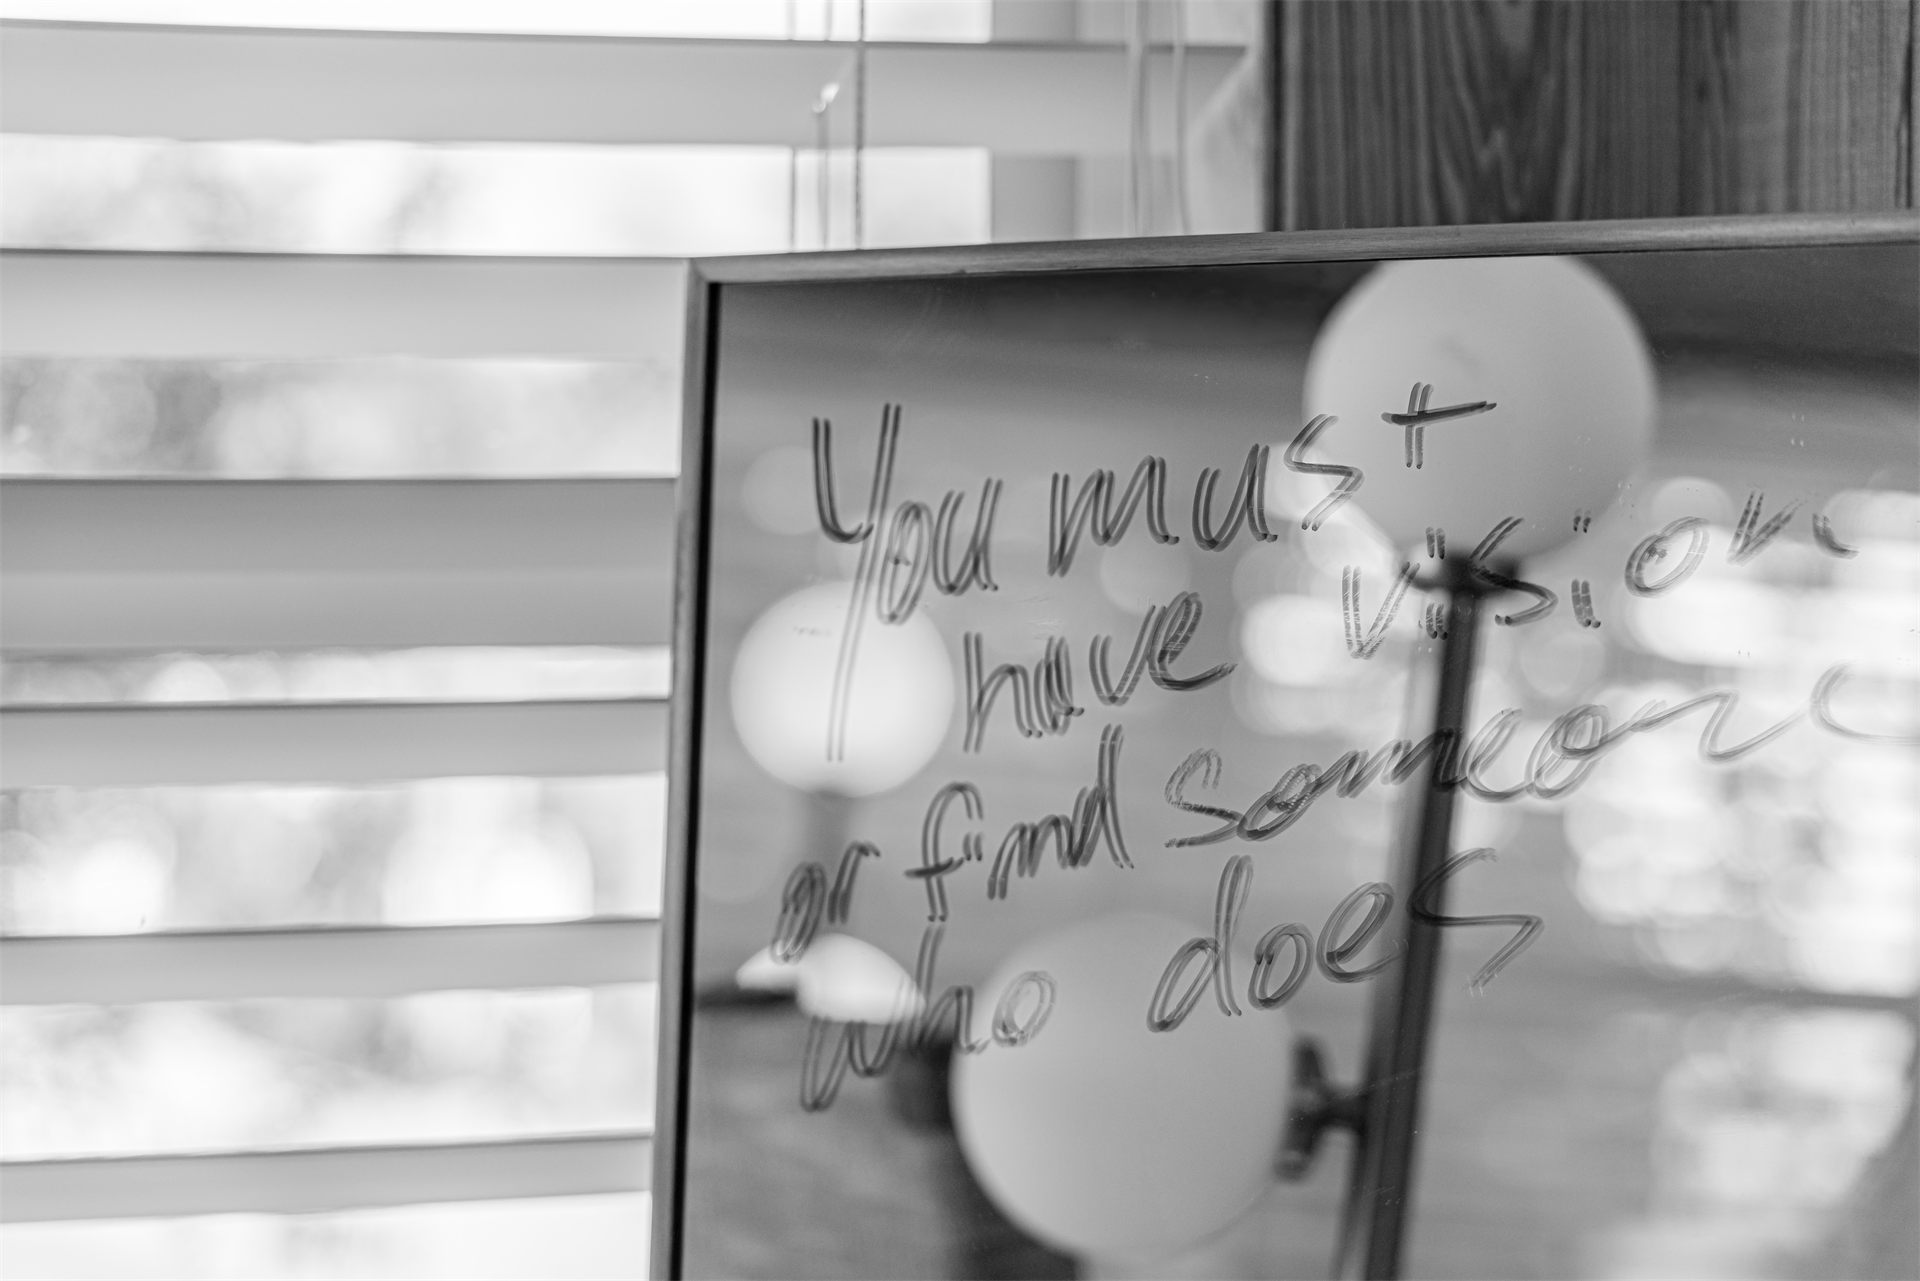 You must
have vision
or find someone
who does